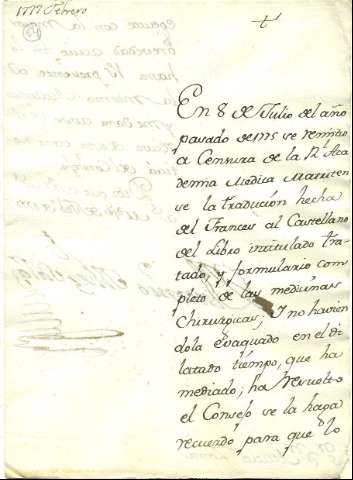 1777 Febrero
En 8 de Julio del año
pasado de 1775 se remitio
a Censura de la Rl Aca
demia Medica Matriten
se la traducion hecha
del Frances al Castellano
del Libro intitulado tra
tado, y formulario com
pleto de las medicinas
Chirurgicas; Y no havien
dola evaquado en el di
latado tiempo, que ha
mediado; ha resuelto
el Consejo se la haga
recuerdo para que lo